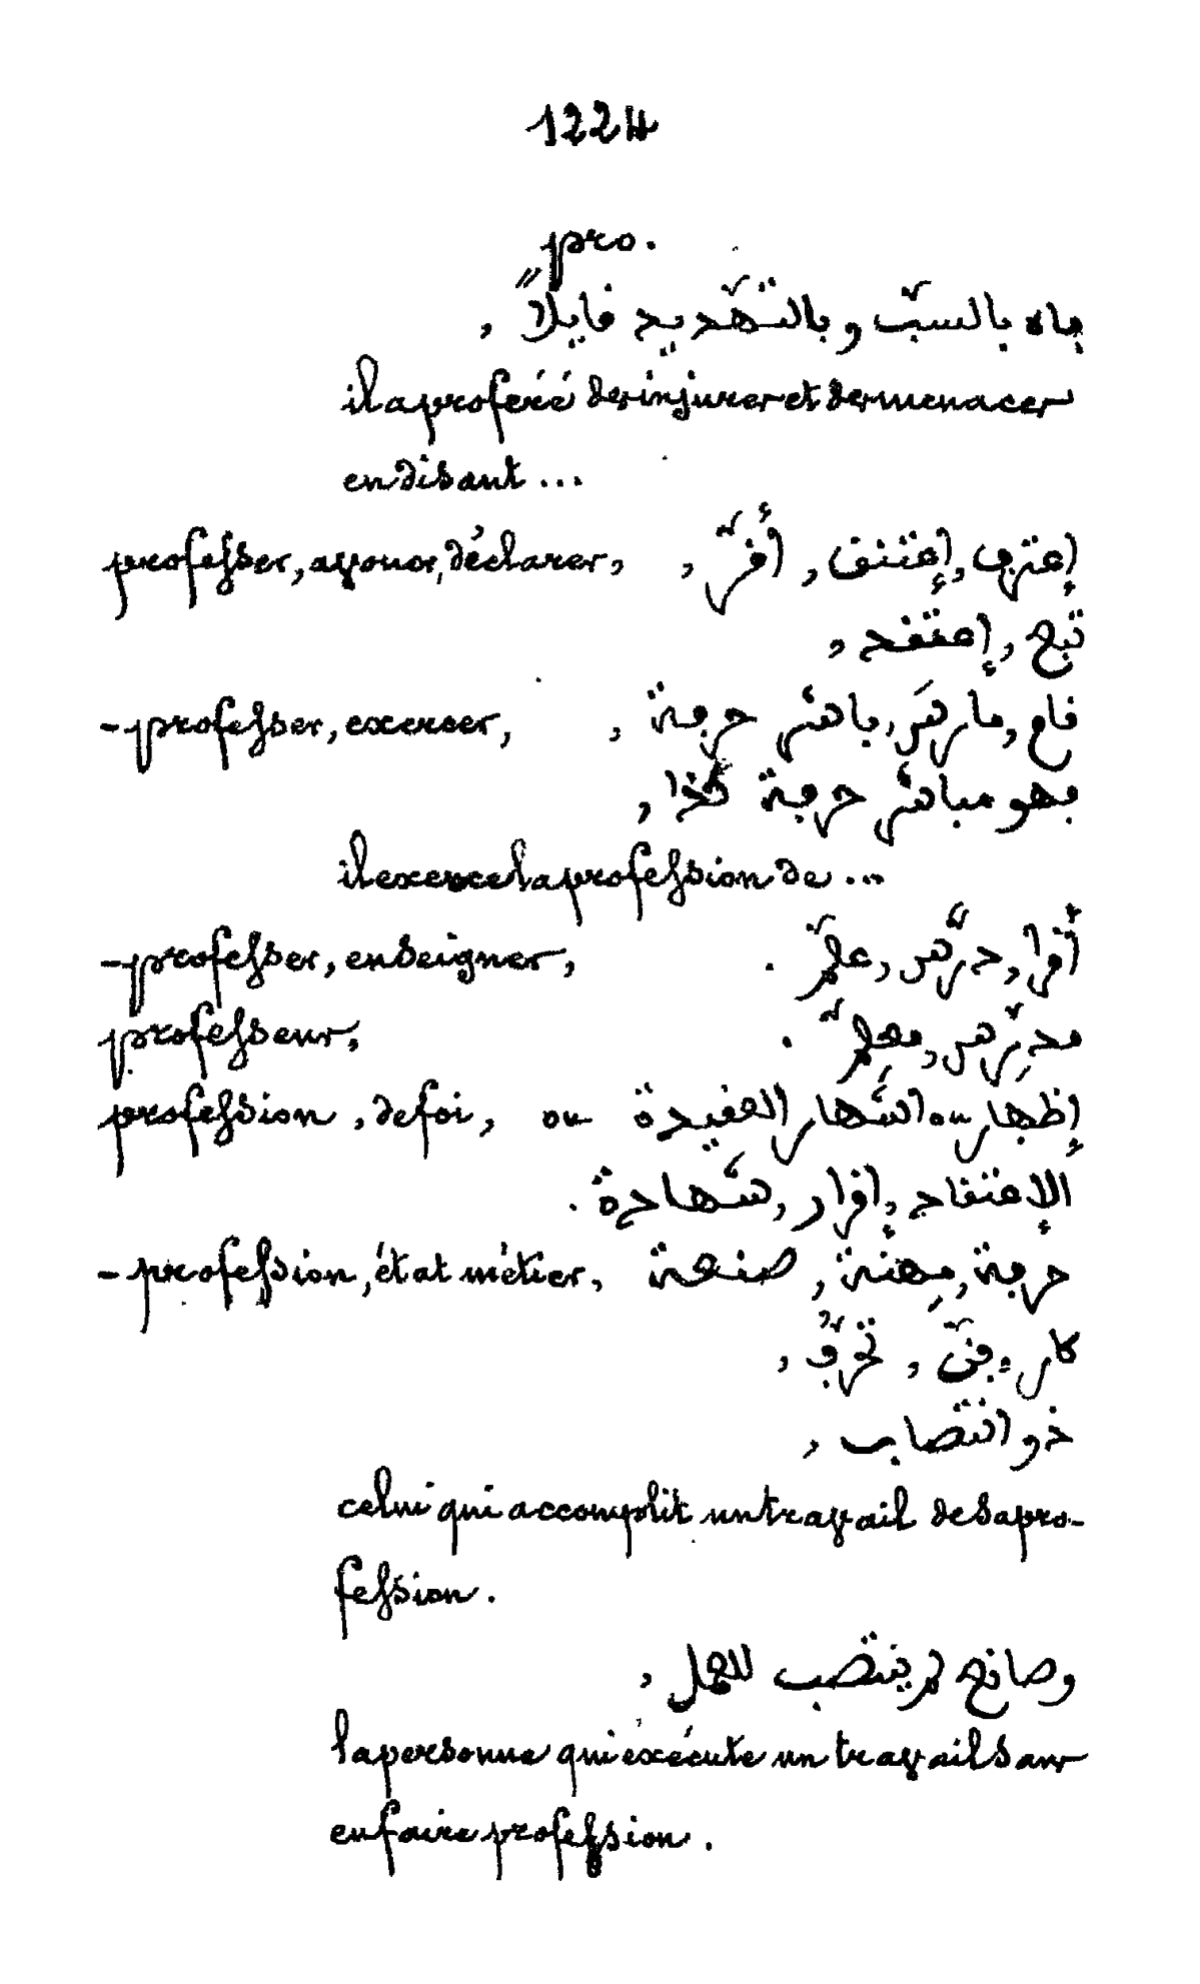 1224
pro.
فاه بالسبّ وبالتهديد قايلاً ,
il a proféré des injures et des menaces
en disant ...
professer, avouer, déclarer, إعترف, إعتنق, أقرّ ,
تبع, إعتقد ,
- professer, exercer, مارس, باشر حرفة ,
فهو مباشر حرفة كذا ,
il exerce la profession de ...
- professer, enseigner, أقرا, درّس, علّم .
professeur, مدرّس, معلّم .
profession, de foi, إظهار ou اشهار العقيدة ou
الإعتقاد, إقرار, شهادة .
- profession, état métier, حرفة, مِهنة, صنعة
كار, فنّ, تحرّف ,
ذو انتصاب ,
celui qui accomplit un travail de sa pro-
fession.
وصانع لم ينتصب للعمل ,
la personne qui exécute un travail sans
en faire profession.